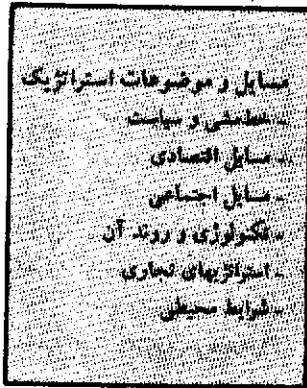 مسایل و موضوعات استراتژیک
- خط‌مشی و سیاست
- مسایل اقتصادی
- مسایل اجتماعی
- تکنولوژی و روند آن
- استراتژیهای تجاری
- شرایط محیطی